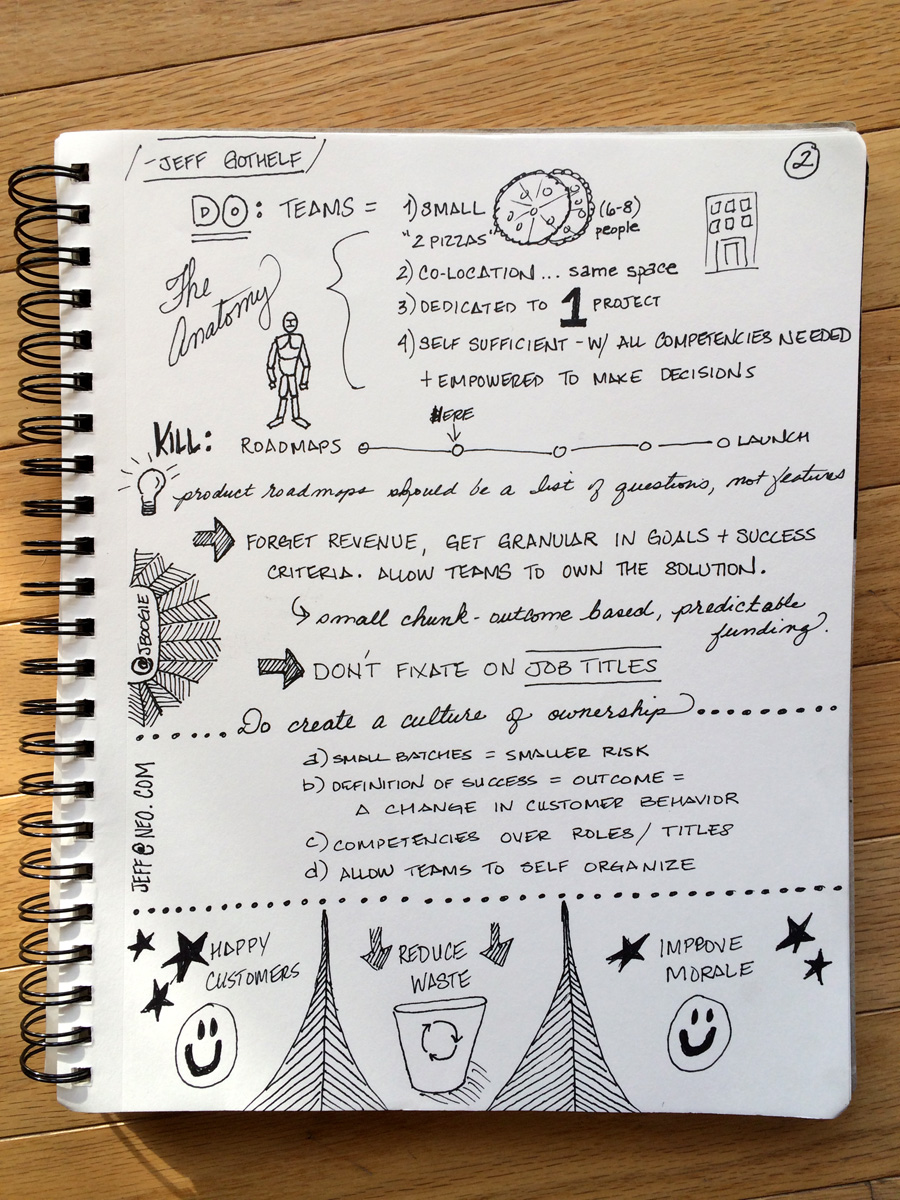 - JEFF GOTHELF
2
DO: TEAMS =
1) SMALL
"2 PIZZAS"
(6-8)
people
2) CO-LOCATION ... same space
3) DEDICATED TO 1 PROJECT
4) SELF SUFFICIENT - W/ ALL COMPETENCIES NEEDED
+ EMPOWERED TO MAKE DECISIONS
The
Anatomy
HERE
KILL: ROADMAPS LAUNCH
product roadmaps should be a list of questions, not features
FORGET REVENUE, GET GRANULAR IN GOALS + SUCCESS
CRITERIA. ALLOW TEAMS TO OWN THE SOLUTION.
small chunk - outcome based, predictable
funding.
@JBOOGIE
DON'T FIXATE ON JOB TITLES
Do create a culture of ownership
a) SMALL BATCHES = SMALLER RISK
b) DEFINITION OF SUCCESS = OUTCOME =
A CHANGE IN CUSTOMER BEHAVIOR
c) COMPETENCIES OVER ROLES / TITLES
d) ALLOW TEAMS TO SELF ORGANIZE
JEFF@NEO.COM
HAPPY
CUSTOMERS
REDUCE
WASTE
IMPROVE
MORALE